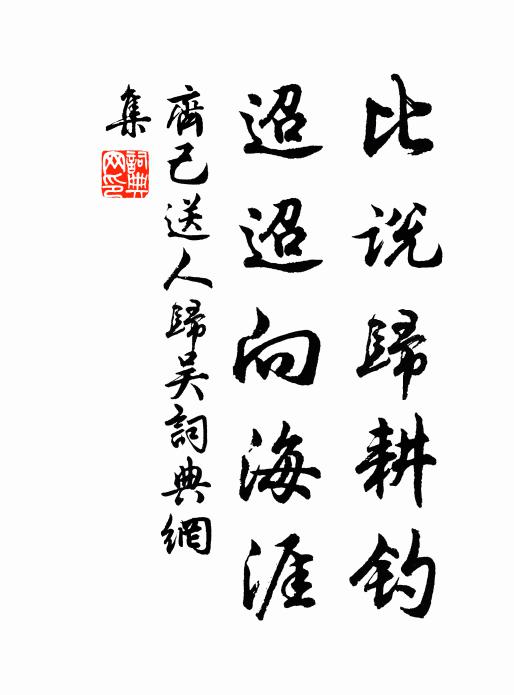 比说歸耕钓
迢迢向海涯
齊己送人歸吴詞典網
集
詞典
网印